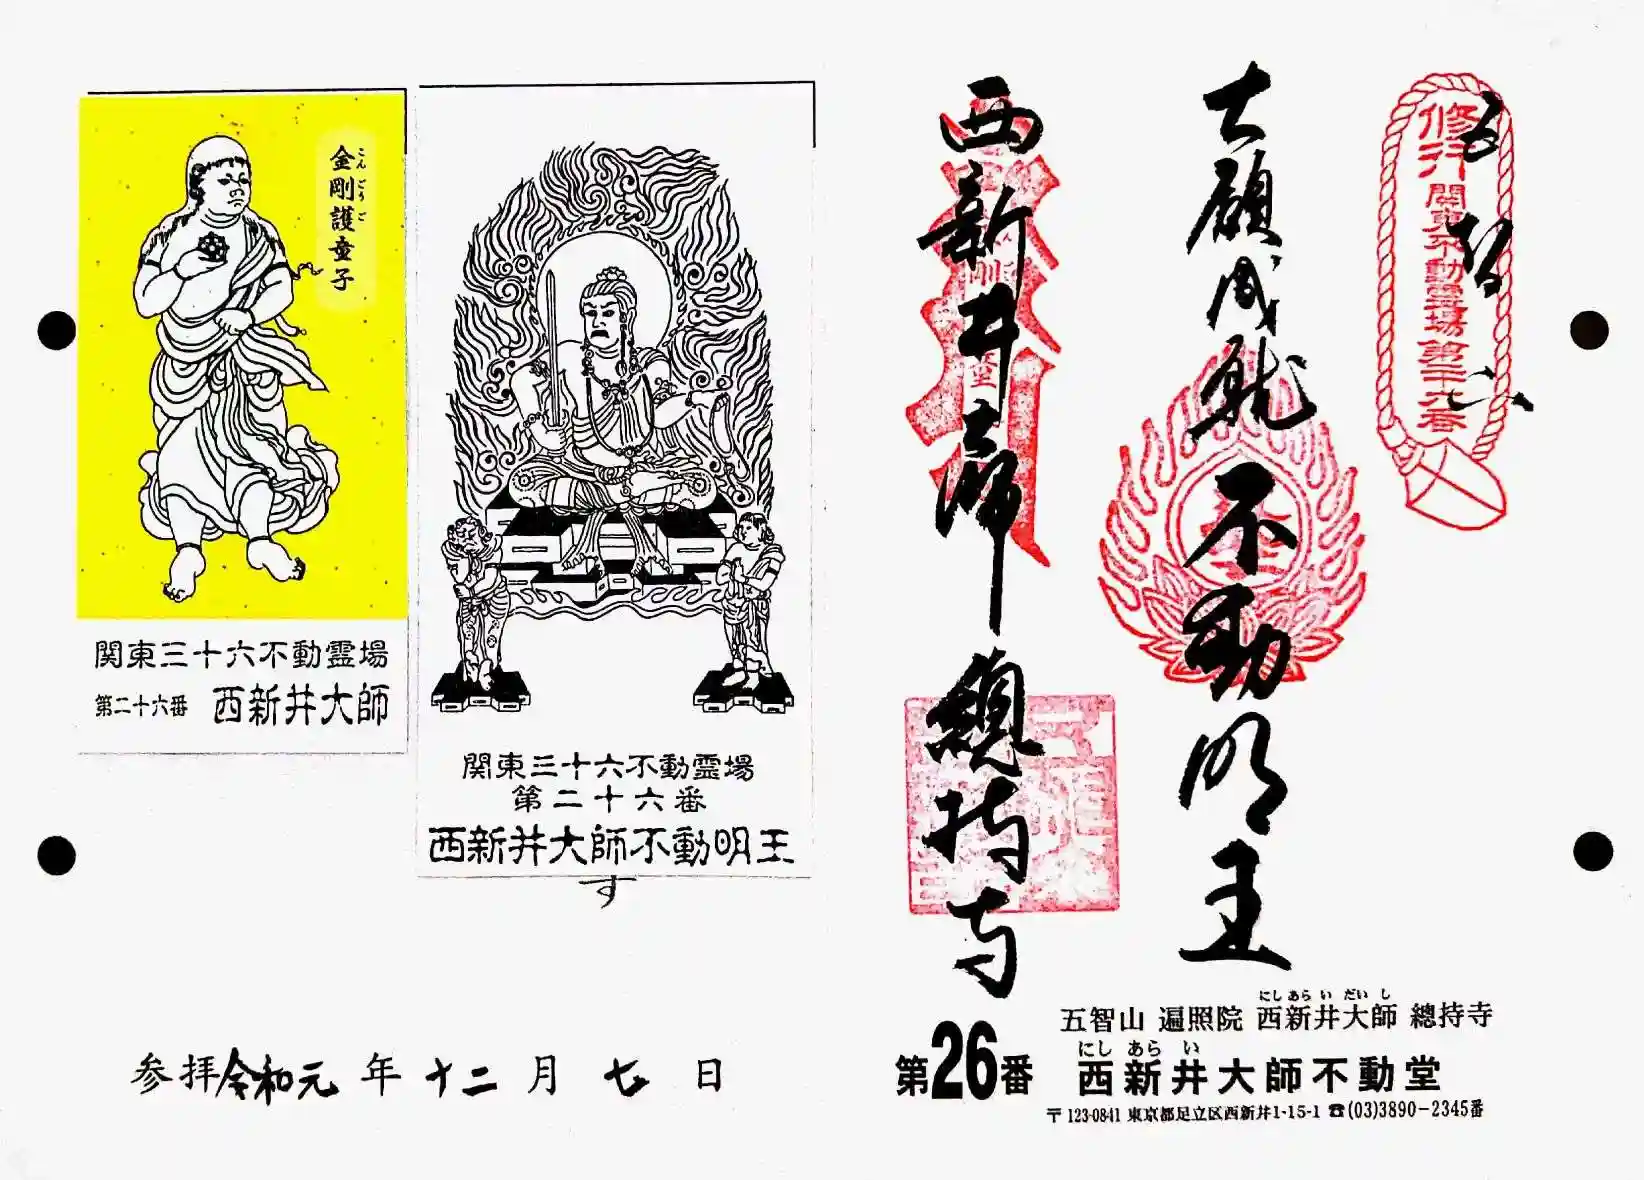 金剛護童子
こんごうごどうじ
関東三十六不動霊場
第二十六番 西新井大師
関東三十六不動霊場
第二十六番
西新井大師不動明王
す
参拝令和元年十二月七日
五智山
修行
関東不動霊場第二十六番
大願成就不動明王
西新井大師 總持寺
にしあらいだいし
五智山 遍照院 西新井大師 總持寺
にしあらい
第26番 西新井大師不動堂
〒123-0841 東京都足立区西新井1-15-1 ☎(03)3890-2345番